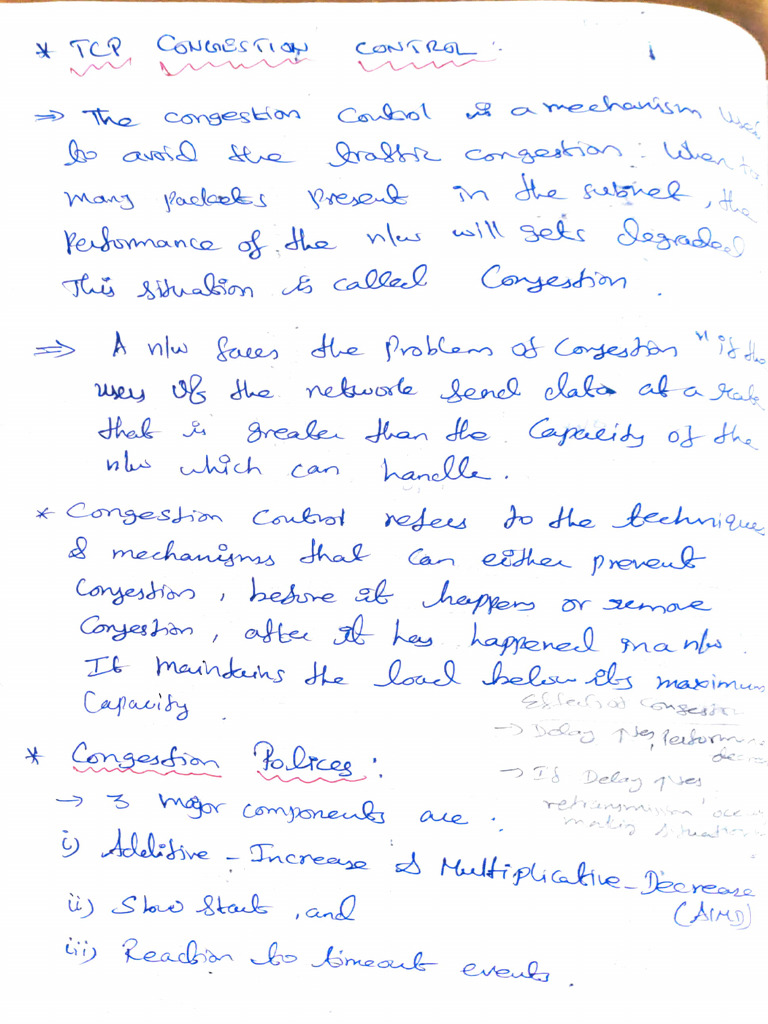 * TCP CONGESTION CONTROL :
⇒ The congestion control is a mechanism used
to avoid the traffic congestion. When too
many packets present in the subnet, the
performance of the n/w will gets degraded
This situation is called Congestion.
⇒ A n/w faces the problem of congestion "if the
users of the network send data at a rate
that is greater than the Capacity of the
n/w which can handle.
* Congestion control refers to the techniques
& mechanisms that can either prevent
Congestion, before it happens or remove
Congestion, after it has happened in a n/w.
It maintains the load below its maximum
Capacity.
Effect of Congestion
→ Delay ↑ses, Performance
decre
→ If Delay ↑ses
retransmission occu
making situation
* Congestion Polices :
→ 3 major components are :
i) Additive - Increase & Multiplicative - Decrease
(AIMD)
ii) Slow Start, and
iii) Reaction to timeout events.